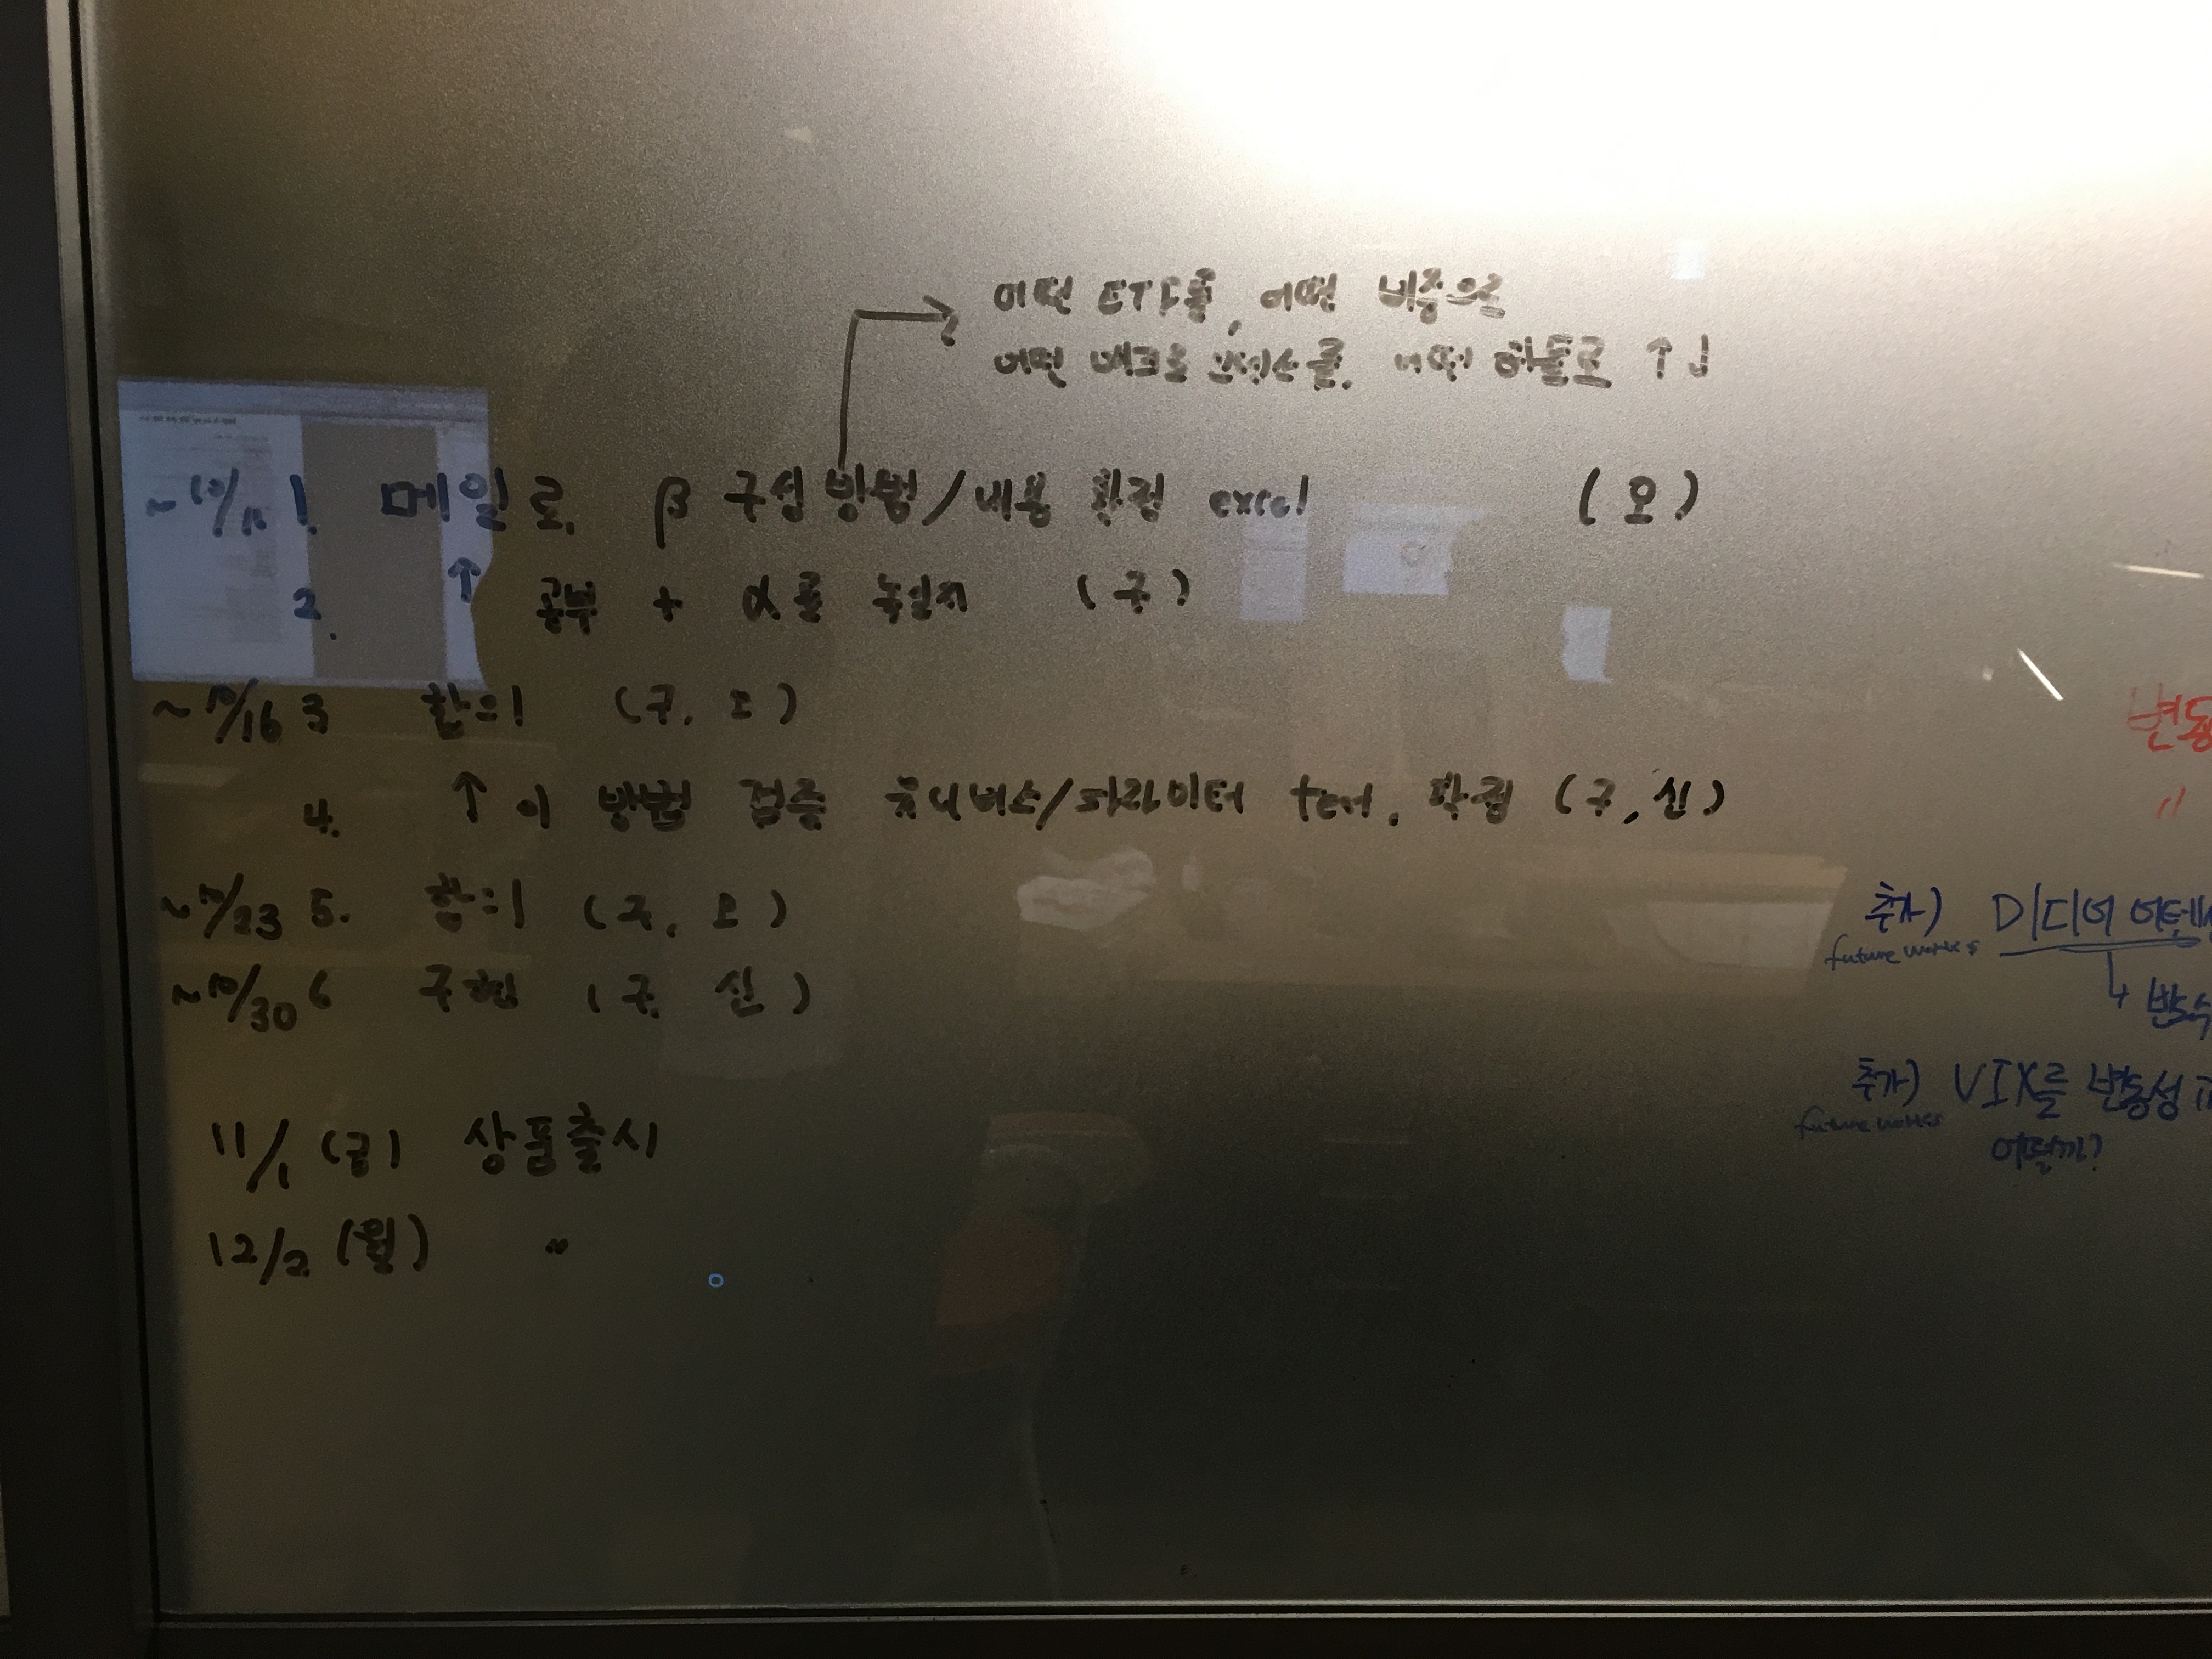 어떤 ETF를, 어떤 비중으로
어떤 매크로 변수를, 어떤 허들로 ↑↓
1. 메일로, β 구성 방법/비용 환경 excel (오)
2. ↑ 공부 + α를 녹일지 (구)
~10/16 3 합의 (구, 오)
4. ↑ 이 방법 검증 유니버스/파라미터 test, 확정 (구, 신)
~10/23 5. 합의 (구, 오)
~10/30 6 구현 (구, 신)
11/1 (금) 상품출시
12/2 (월) "
변동
"
추가)
future works
↳ 변수
추가) VIX를 변동성
future works
어떨까?